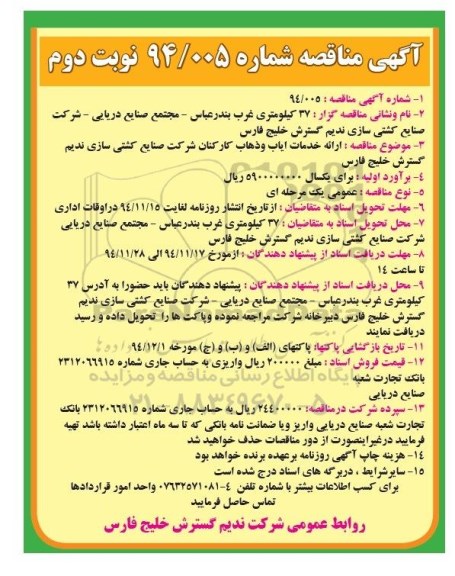 آگهی مناقصه شماره ۹۴/۰۰۵ نوبت دوم
۱- شماره آگهی مناقصه : ۹۴/۰۰۵
۲- نام ونشانی مناقصه گزار : ۳۷ کیلومتری غرب بندرعباس - مجتمع صنایع دریایی - شرکت
صنایع کشتی سازی ندیم گسترش خلیج فارس
۳- موضوع مناقصه : ارائه خدمات ایاب وذهاب کارکنان شرکت صنایع کشتی سازی ندیم
گسترش خلیج فارس
۴- برآورد اولیه : برای یکسال ۵۹۰۰۰۰۰۰۰۰ ریال
۵- نوع مناقصه : عمومی یک مرحله ای
۶- مهلت تحویل اسناد به متقاضیان : ازتاریخ انتشار روزنامه لغایت ۹۴/۱۱/۱۵ دراوقات اداری
۷- محل تحویل اسناد به متقاضیان : ۳۷ کیلومتری غرب بندرعباس - مجتمع صنایع دریایی
شرکت صنایع کشتی سازی ندیم گسترش خلیج فارس
۸- مهلت دریافت اسناد از پیشنهاد دهندگان : ازمورخ ۹۴/۱۱/۱۷ الی ۹۴/۱۱/۲۸
تا ساعت ۱۴
۹- محل دریافت اسناد از پیشنهاد دهندگان : پیشنهاد دهندگان باید حضورا به آدرس ۳۷
کیلومتری غرب بندرعباس - مجتمع صنایع دریایی - شرکت صنایع کشتی سازی ندیم
گسترش خلیج فارس دبیرخانه شرکت مراجعه نموده وپاکت ها را تحویل داده و رسید
دریافت نمایند
۱۱- تاریخ بازگشایی پاکتها: پاکتهای (الف) و (ب) و (ج) مورخه ۹۴/۱۲/۱
۱۲- قیمت فروش اسناد : مبلغ ۲۰۰۰۰۰ ریال واریزی به حساب جاری شماره ۲۳۱۲۰۶۶۹۱۵
بانک تجارت شعبه
صنایع دریایی
۱۳- سپرده شرکت درمناقصه: ۲۴۴۰۰۰۰۰ ریال به حساب جاری شماره ۲۳۱۲۰۶۶۹۱۵ بانک
تجارت شعبه صنایع دریایی واریز ویا ضمانت نامه بانکی که تا سه ماه اعتبار داشته باشد تهیه
فرمایید درغیراینصورت از دور مناقصات حذف خواهید شد
۱۴- هزینه چاپ آگهی روزنامه برعهده برنده خواهد بود
۱۵- سایرشرایط ، دربرگه های اسناد درج شده است
برای کسب اطلاعات بیشتر با شماره تلفن ۴-۰۷۶۳۲۵۷۱۰۸۱ واحد امور قراردادها
تماس حاصل فرمایید
روابط عمومی شرکت ندیم گسترش خلیج فارس
پایگاه اطلاع رسانی مناقصه و مزایده
۰۲۱-۸۸۳۴۹۶۷۰-۵